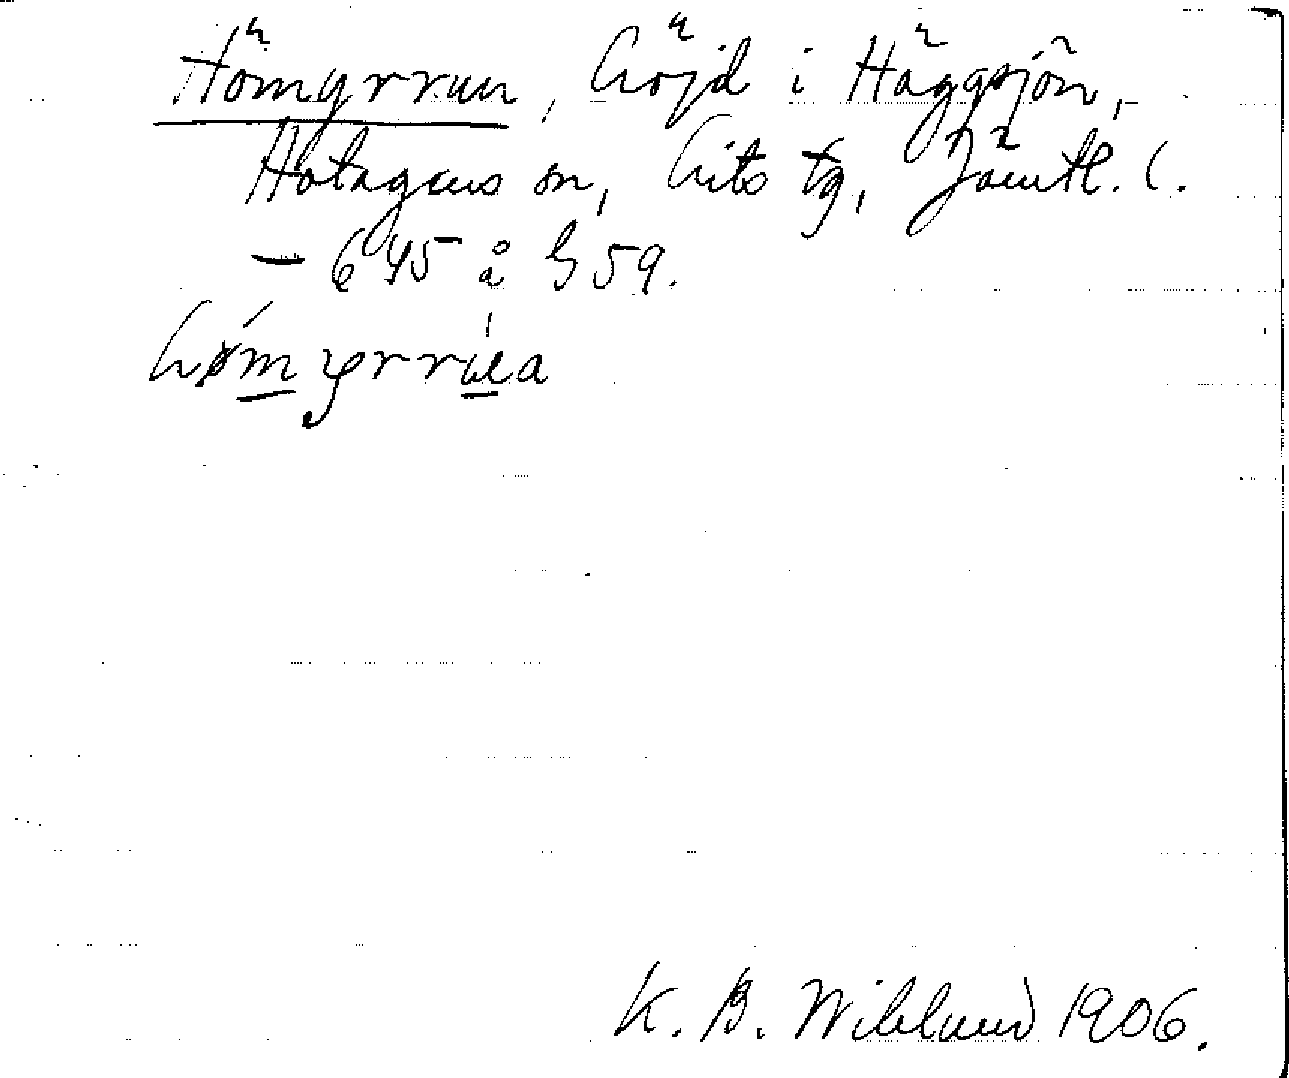 Hömyrran, höjd i Häggsjön,
Hotagens sn, Lits tg, Jämtl. l.
— 645 å h 59.
K. B. Wiklund 1906.